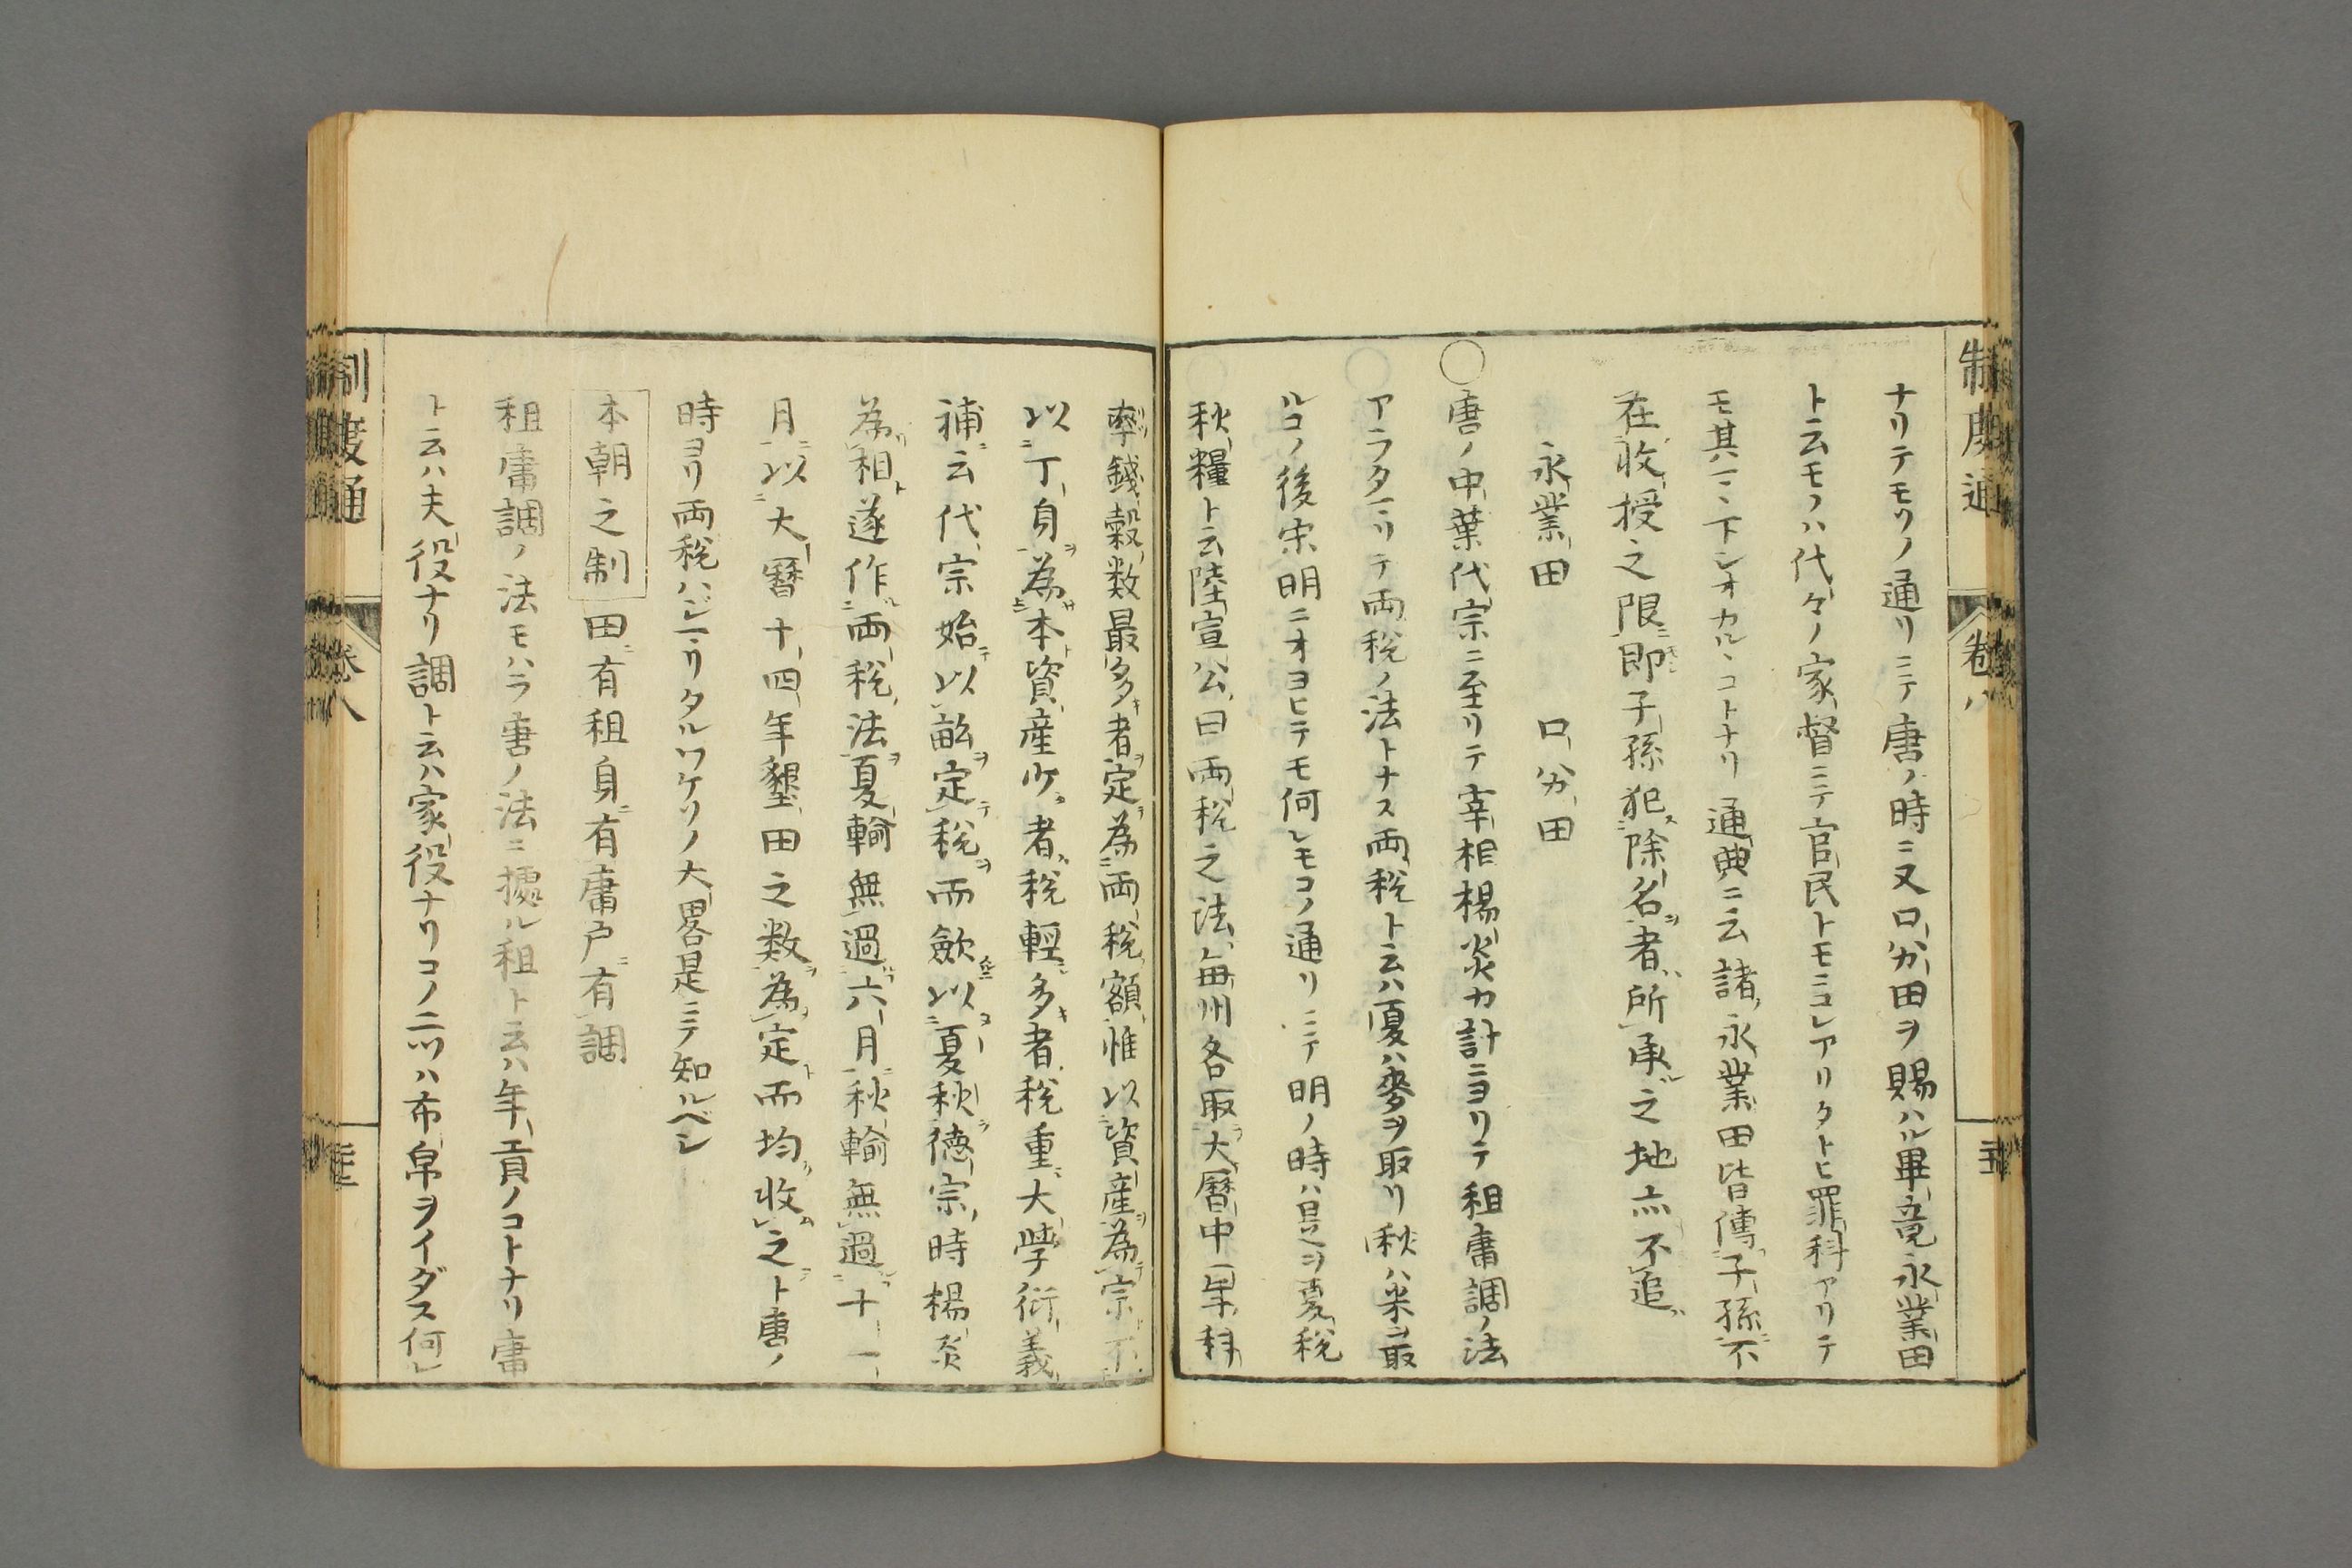 制度通 卷八
ナリテモリノ通リニテ唐ノ時ニ又口分田ヲ賜ハル畢竟永業田
ト云モノハ代々ノ家督ニテ官民トモニコレアリタトヒ罪科アリテ
モ其ハヽ下シオカルヽコトナリ通典ニ云諸永業田皆傳子孫不
在收授之限即子孫犯除名者所承之地亦不追
永業田 口分田
○唐ノ中葉代宗ニ至リテ宰相楊炎カ計ニヨリテ租庸調ノ法
アラタマリテ両税ノ法トナス両税ト云ハ夏ハ麥ヲ取リ秋ハ米ヲ取
ルコノ後宋明ニオヨヒテモ何レモコノ通リニテ明ノ時ハ是ヲ夏税
秋糧ト云陸宣公曰両税之法毎州各取大曆中一年科
率錢穀数最多者定為両税額惟以資産為宗不
以丁身為本資産少者税輕多者税重大學衍義
補云代宗始以畝定税而歛以夏秋德宗時楊炎
為相遂作両税法夏輸無過六月秋輸無過十一
月以大曆十四年墾田之数為定而均收之ト唐ノ
時ヨリ両税ハジマリタルワケリノ大畧是ニテ知ルベシ
本朝之制 田有租身有庸戸有調
租庸調ノ法モハラ唐ノ法ニ據ル租ト云ハ年貢ノコトナリ庸
ト云ハ夫役ナリ調ト云ハ家役ナリコノ二ツハ布帛ヲイダス何レ
制度通 卷八